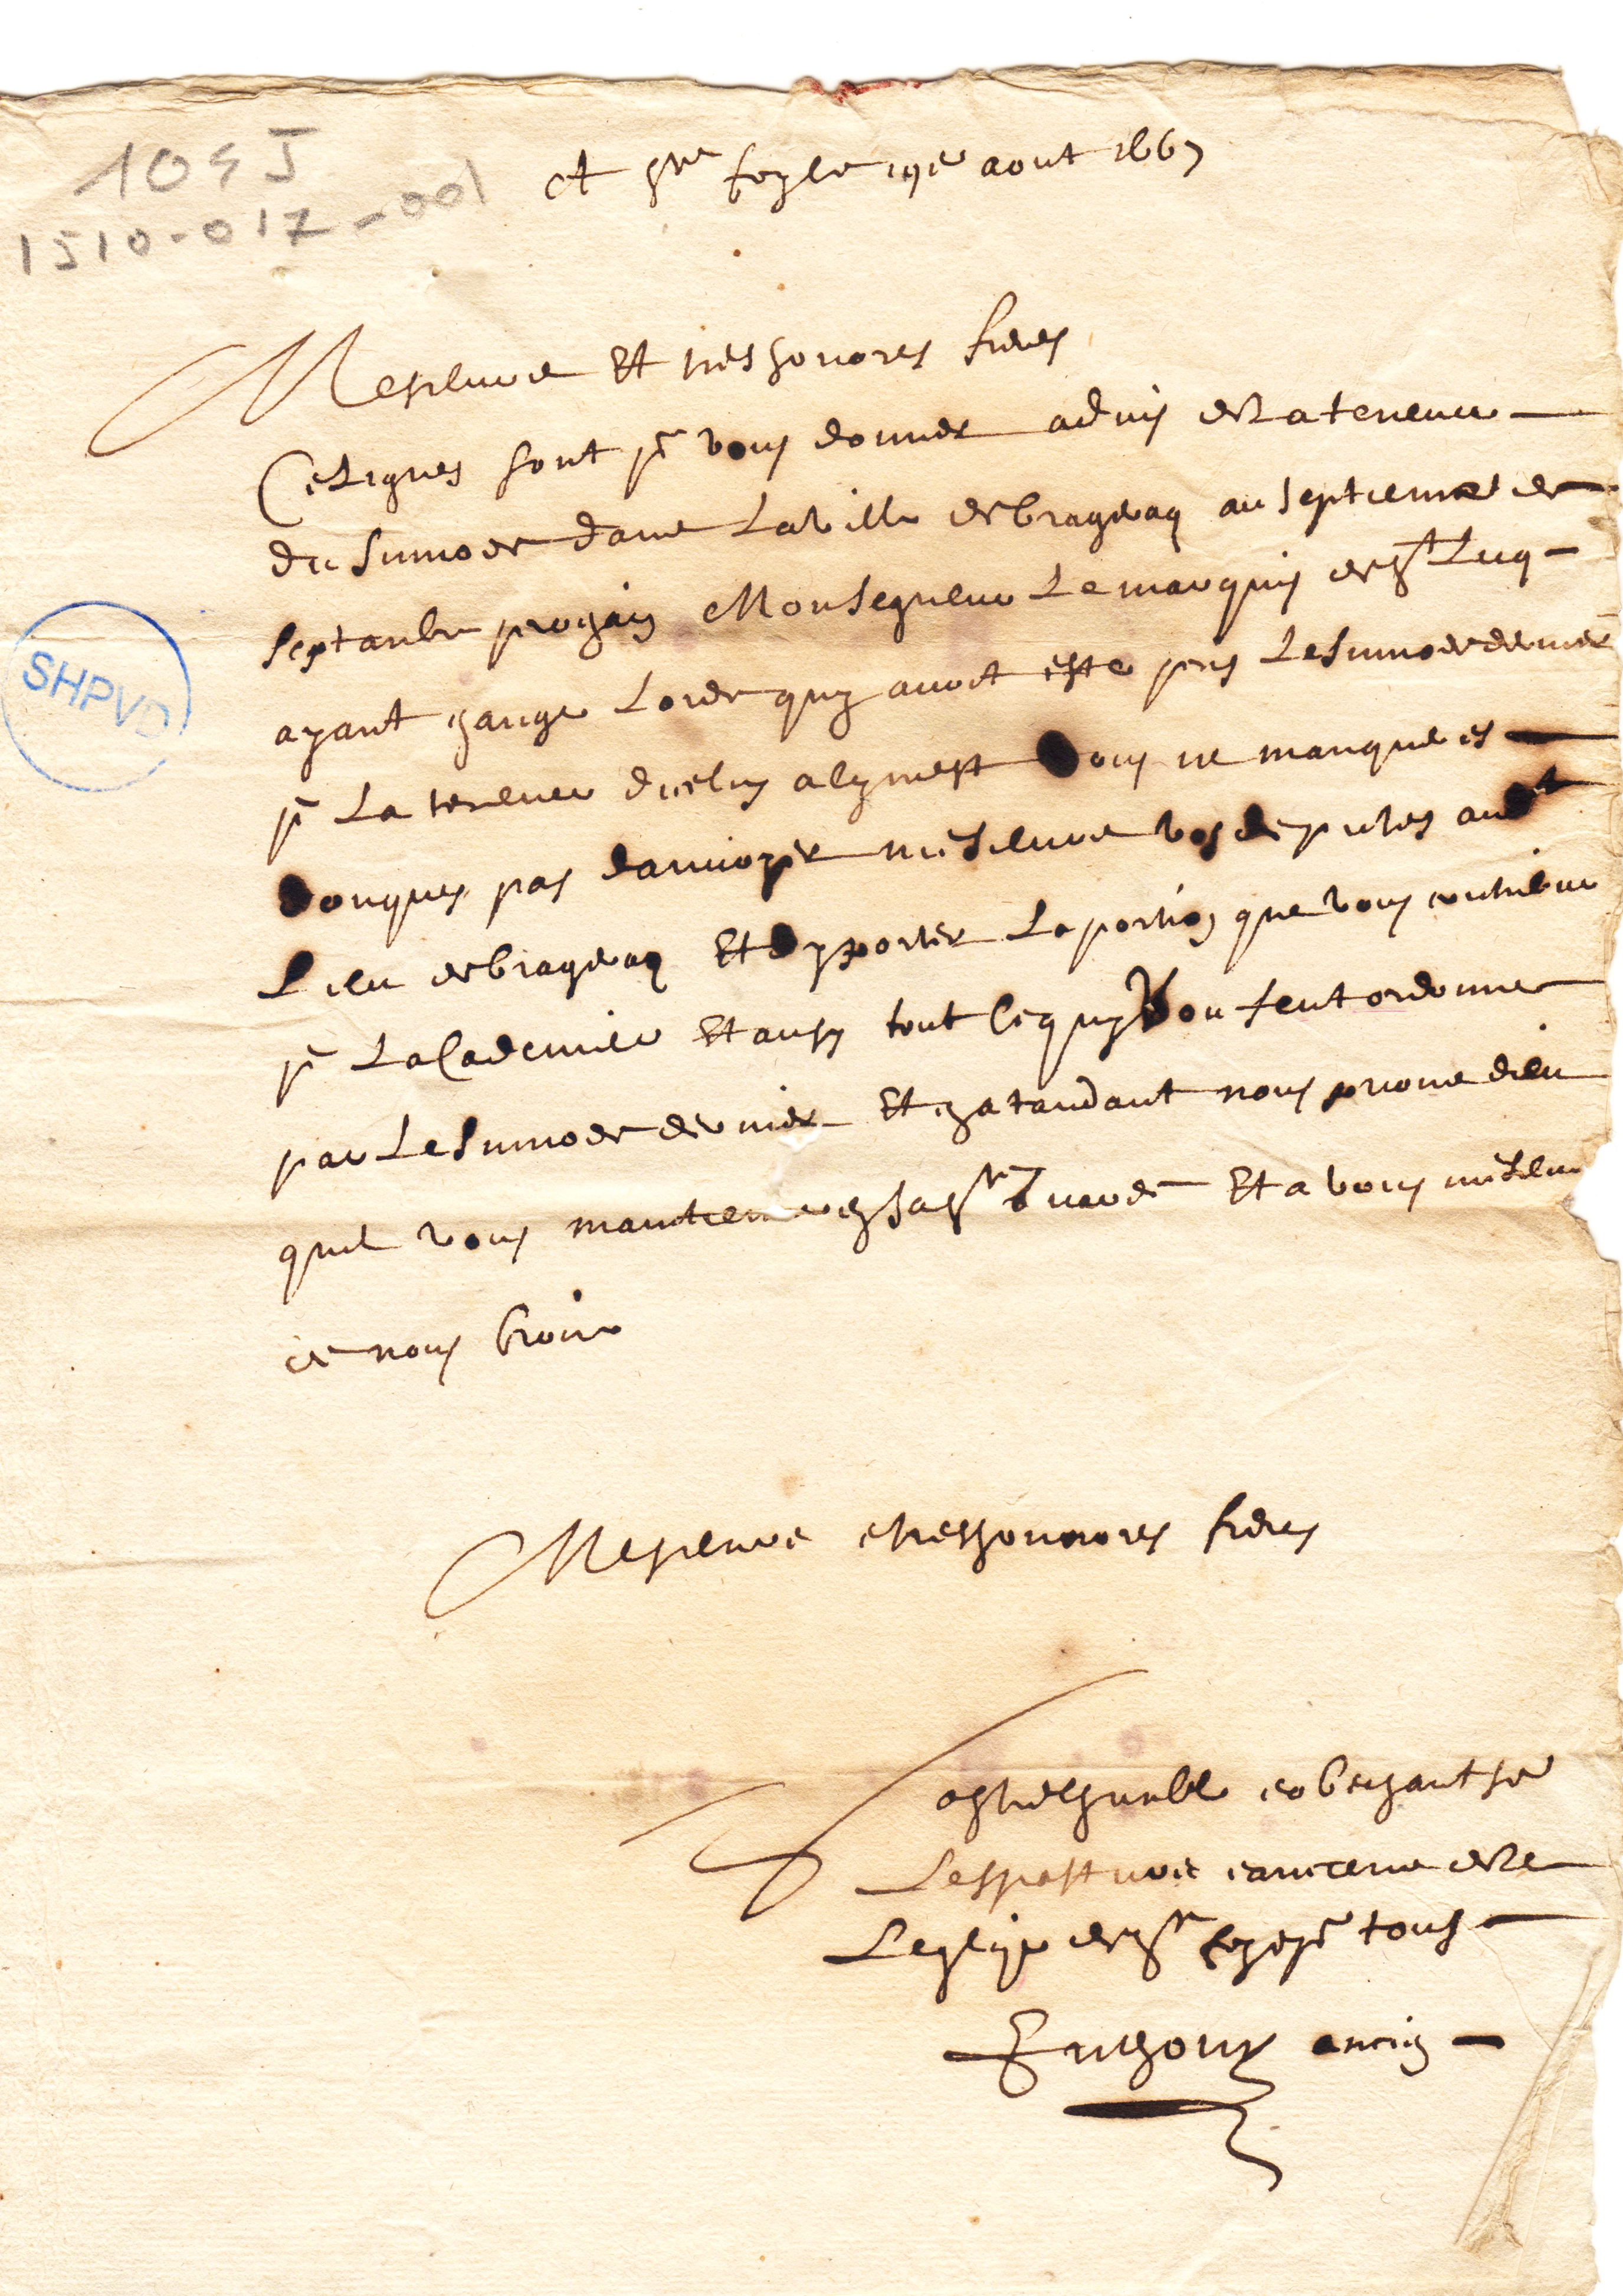 104J
1510-017-001
A ste foy le 19e aout 1667
SHPVD
Messieurs Et tres honores freres
Ce Lignes sont pr vous donner advis de La teneue
du sinnode dans La ville de brageraq au septieme de
septanbre prochain Monsegneur Le marquis de st Luq
ayant change Lorde quy avoit este pris Le sinnode dernier
pr La teneue diceluy a lymest vous ne manqueres
donques pas danvoyer messieurs vos deputes audt
Lieu de brageraq Et dy porter La portion que vous contribue
pr La Cademie Et ausy tout Ce quy
par Le sinnode dernier Et en atandant nous prions dieu
quil vous maintiene en sa ste garde Et a vous messieurs
de nous Croire
Messieurs e tres honnores freres
Vos tres humble e obeisant se
Les pasteurs e anciens de
Leglise de ste foy e pr tous
ancien